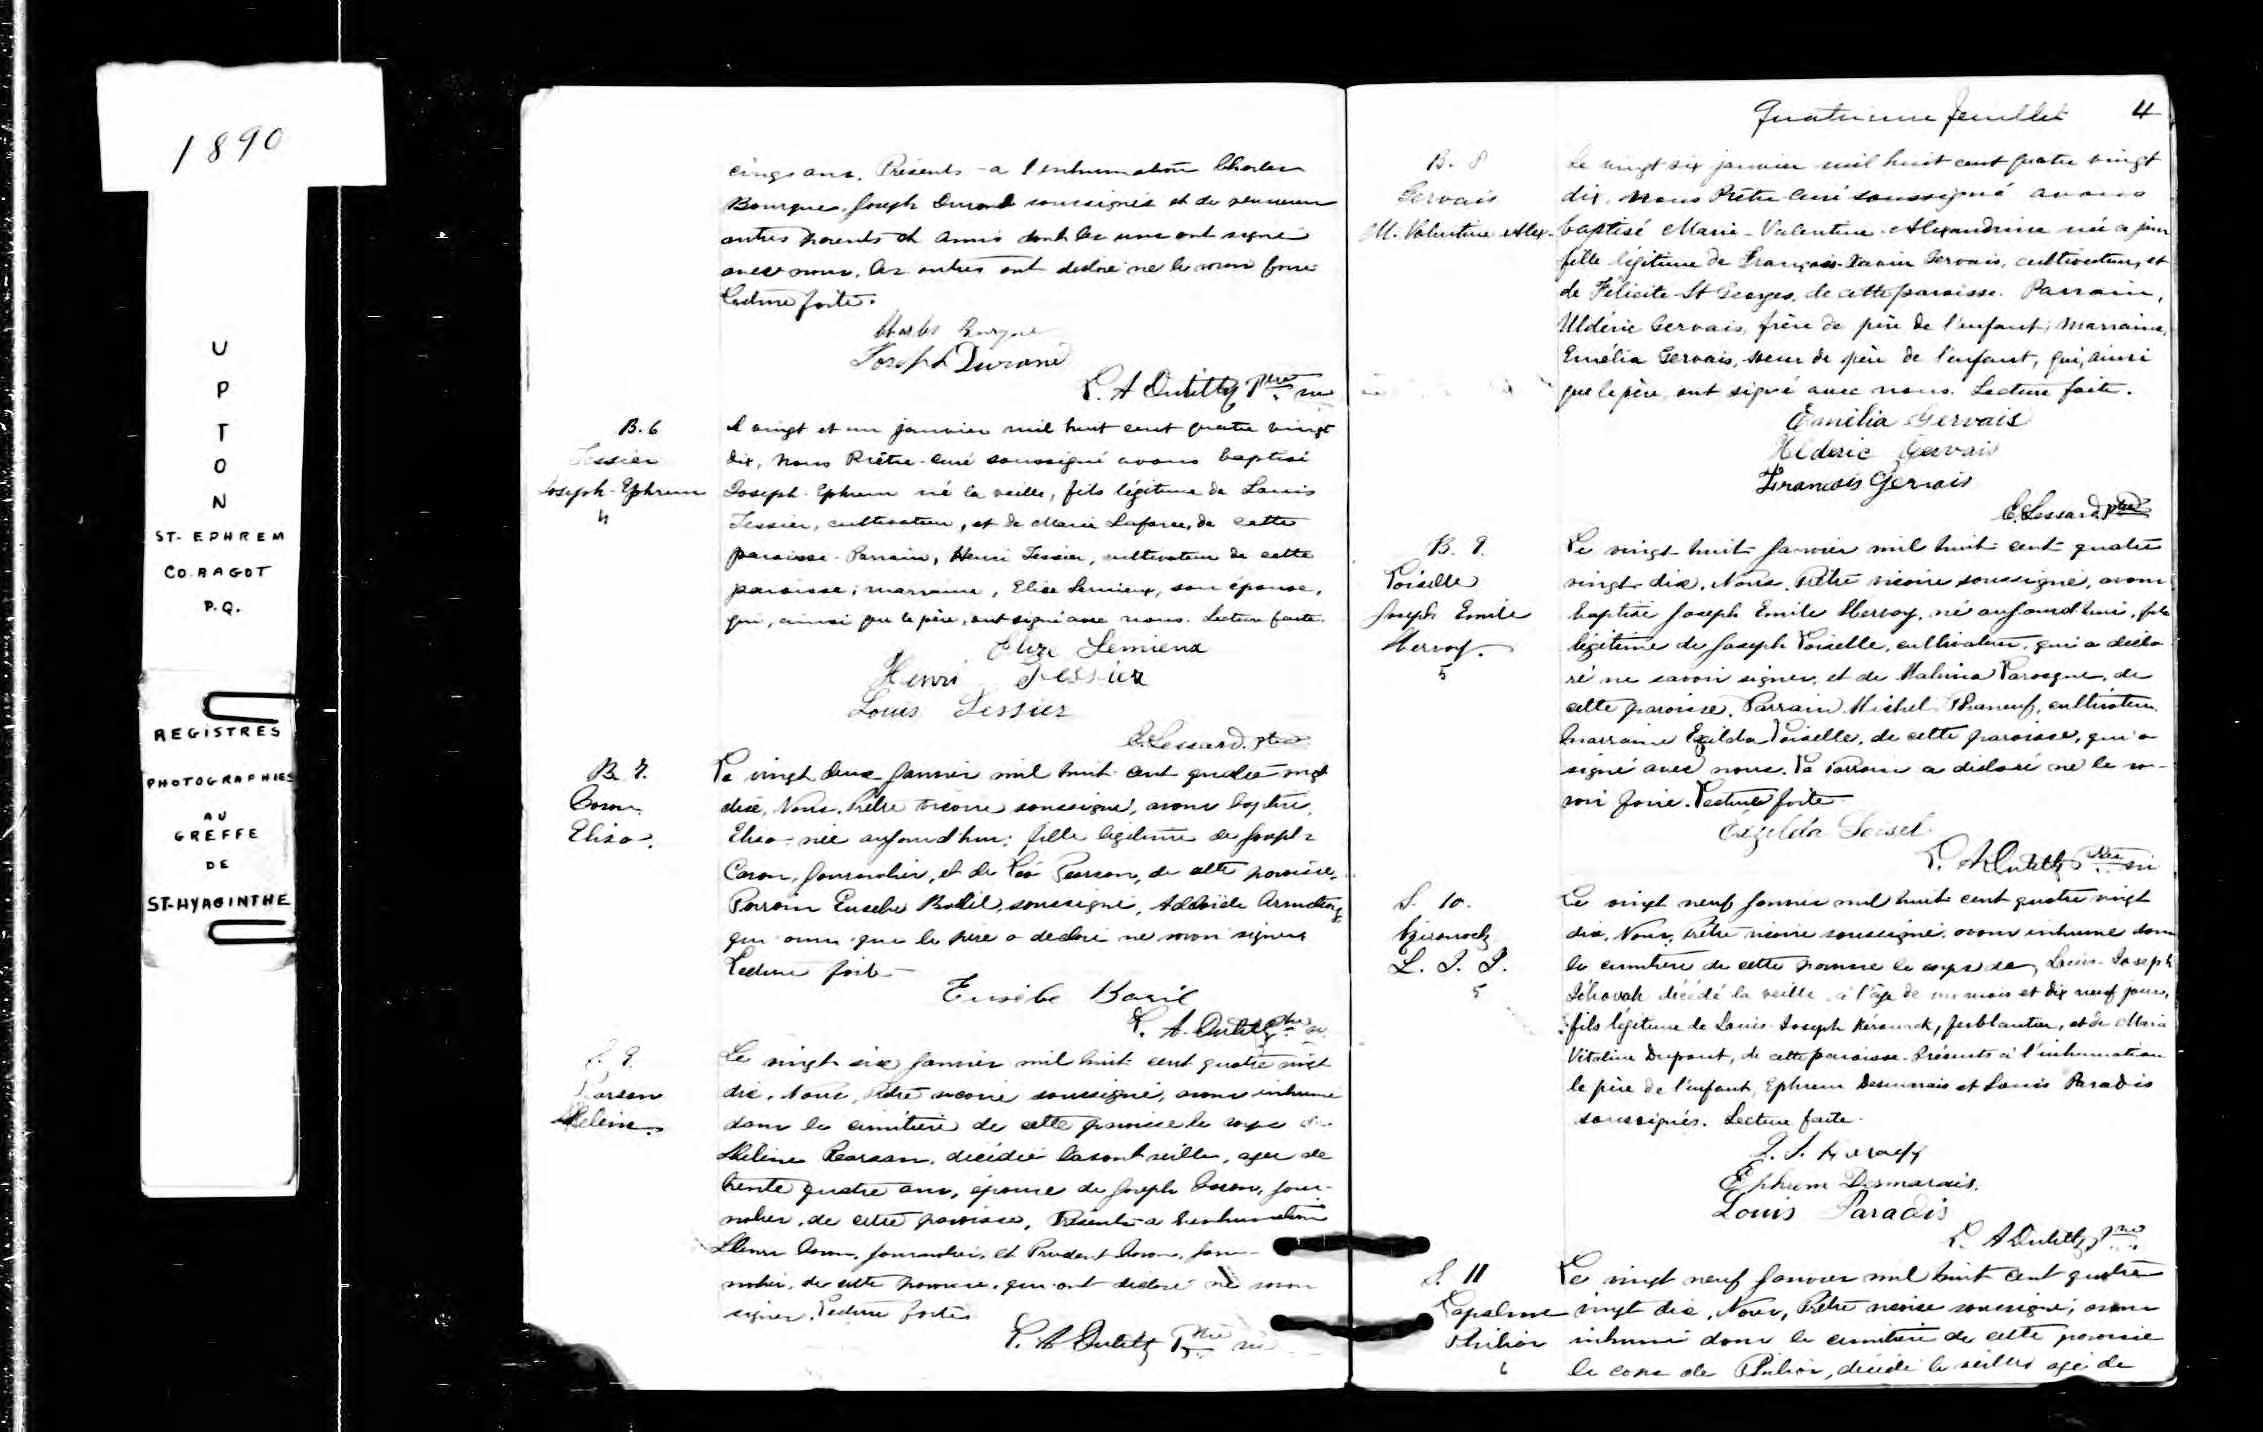 1890
U
P
T
O
N
ST-EPHREM
CO. BAGOT
P.Q.
REGISTRES
PHOTOGRAPHIES
AU
GREFFE
DE
ST-HYACINTHE
cinq ans. Présents à l'inhumation Charles
Bourque, Joseph Durand soussignés et de
autres parents et amis dont les uns ont signé
avec nous, les autres ont déclaré ne le savoir faire
Lecture faite.
Charles Bourque
Joseph Durand
B. 6
Tessier
Joseph-Ephrem
4
Le vingt et un janvier mil huit cent quatre vingt
dix, Nous Prêtre-curé soussigné avons baptisé
Joseph-Ephrem né la veille, fils légitime de Louis
Tessier, cultivateur, et de Marie de cette
paroisse. Parrain, Henri Tessier, cultivateur de cette
paroisse; marraine, Elise Lemieux, son épouse,
qui, ainsi que le père, ont signé avec nous. Lecture faite.
Lemieux
Henri Tessier
Louis Tessier
C. Lessard, ptre
B. 7.
Caron
Eliza
Le vingt deux Janvier mil huit cent quatre vingt
dix, Nous, Prêtre vicaire soussigné, avons baptisé
Eliza née aujourd'hui, fille légitime de Joseph
Caron, journalier, et de Pearson, de cette paroisse.
Parrain Eusèbe Basil, soussigné, Adelaïde Armstrong
qui ainsi que le père a déclaré ne savoir signer
Lecture faite
Eusèbe Basil
S. 9.
Pearson
Hélène
Le vingt six Janvier mil huit cent quatre vingt
dix, Nous, Prêtre vicaire soussigné, avons inhumé
dans le cimetière de cette paroisse le corps de
Hélène Pearson, décédée l'avant veille, agée de
trente quatre ans, épouse de Joseph Caron, jour-
nalier, de cette paroisse. Présents à l'inhumation
Henri Caron, journalier, et Prudent Caron, jour-
nalier, de cette paroisse, qui ont déclaré ne savoir
signer. Lecture faite
Quatrieme feuillet 4
B. 8
Gervais
M. Valentine Alex.
Le vingt six janvier mil huit cent quatre vingt
dix, Nous Prêtre Curé soussigné avons
baptisé Marie-Valentine-Alexandrine née ce jour
fille légitime de François-Xavier Gervais, cultivateur, et
de Félicité St Georges, de cette paroisse. Parrain,
Uldéric Gervais, frère de père de l'enfant; marraine,
Emélia Gervais, soeur de père de l'enfant, qui, ainsi
que le père, ont signé avec nous. Lecture faite.
Emélia Gervais
Uldéric Gervais
Francois Gervais
C. Lessard, ptre
B. 9.
Loiselle
Joseph Emile
Hervey.
5
Le vingt-huit Janvier mil huit cent quatre
vingt-dix, Nous, Prêtre vicaire soussigné, avons
baptisé Joseph Emile Hervey, né aujourd'hui, fils
légitime de Joseph Loiselle, cultivateur, qui a décla-
ré ne savoir signer, et de Malvina de
cette paroisse. Parrain Michel Phaneuf, cultivateur
marraine Exilda Loiselle, de cette paroisse, qui a
signé avec nous. Le Parrain a déclaré ne le sa-
voir faire. Lecture faite
Exzelda Loisel
S. 10.
L. J. J.
5
Le vingt neuf Janvier mil huit cent quatre vingt
dix, Nous, Prêtre vicaire soussigné, avons inhumé dans
le cimetière de cette paroisse le corps de Louis-Joseph
Jéhovah décédé la veille à l'âge de un mois et dix neuf jours,
fils légitime de Louis-Joseph ferblantier, et de Maria
Vitaline Dupont, de cette paroisse. Présents à l'inhumation
le père de l'enfant, Ephrem Desmarais et Louis Paradis
soussignés. Lecture faite.
Ephrem Desmarais.
Louis Paradis
S. 11
Lapalme
6
Le vingt neuf Janvier mil huit cent quatre
vingt dix, Nous, Prêtre vicaire soussigné, avons
inhumé dans le cimetière de cette paroisse
le corps de décédé la veille agé de